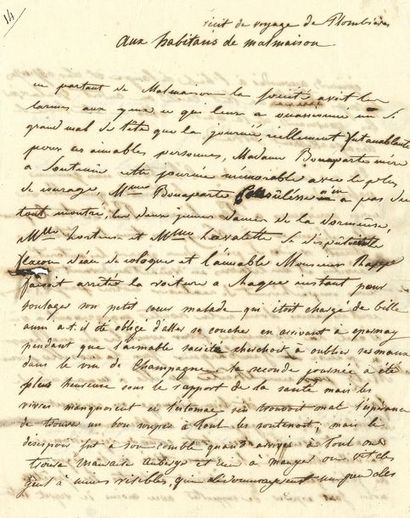 14
récit de voyage de Plombières
aux habitans de malmaison
en partant de Malmaison la société avoit les
larmes aux yeux ce qui leur a occasionné un si
grand mal de tête que la journée réellement fut accablante
pour ces aimables personnes, Madame Bonaparte mère
a soutenu cette journée mémorable avec le plus
de courage Mme Bonaparte Consulesse n'en a pas du
tout montré, les deux jeunes dames de la dormeuse,
Mlle hortense et Mme Lavalette se disputoient le
flacon d'eau de cologne et l'aimable Monsieur Rapp
faisoit arrêter la voiture à chaque instant pour
soulager son petit coeur malade qui étoit chargé de bille
aussi a.t.il été obligé d'aller se coucher en arrivant à epernay
pendant que l'aimable société cherchoit à oublier ses maux
dans le vin de Champagne. la seconde journée a été
plus heureuse sous le rapport de la santé mais les
vivres manquoient et l'estomac s'en trouvoit mal l'espérance
de trouver un bon souper à Toul les soutenoit, mais le
désespoir fut à son comble quand arrivés à Toul on
trouva mauvaise auberge et rien à manger on vit des
gens à mines risibles, qui dédommagerent un peu des